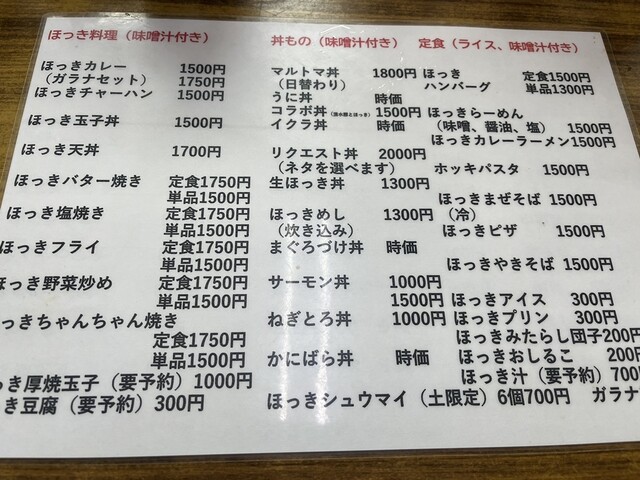 ほっき料理（味噌汁付き）
ほっきカレー 1500円
（ガラナセット） 1750円
ほっきチャーハン 1500円
ほっき玉子丼 1500円
ほっき天丼 1700円
ほっきバター焼き 定食1750円
単品1500円
ほっき塩焼き 定食1750円
単品1500円
ほっきフライ 定食1750円
単品1500円
ほっき野菜炒め 定食1750円
単品1500円
っきちゃんちゃん焼き
定食1750円
単品1500円
っき厚焼玉子（要予約）1000円
き豆腐（要予約）300円
丼もの（味噌汁付き）
マルトマ丼 1800円
（日替わり）
うに丼 時価
コラボ丼 1500円
イクラ丼 時価
リクエスト丼 2000円
（ネタを選べます）
生ほっき丼 1300円
ほっきめし 1300円
（炊き込み）
まぐろづけ丼 時価
サーモン丼 1000円
1500円
ねぎとろ丼 1000円
かにばら丼 時価
ほっきシュウマイ（土限定）6個700円
定食（ライス、味噌汁付き）
ほっき 定食1500円
ハンバーグ 単品1300円
ほっきらーめん
（味噌、醤油、塩） 1500円
ほっきカレーラーメン1500円
ホッキパスタ 1500円
ほっきまぜそば 1500円
（冷）
ほっきピザ 1500円
ほっきやきそば 1500円
ほっきアイス 300円
ほっきプリン 300円
ほっきみたらし団子200円
ほっきおしるこ 200
ほっき汁（要予約）700
ガラナ